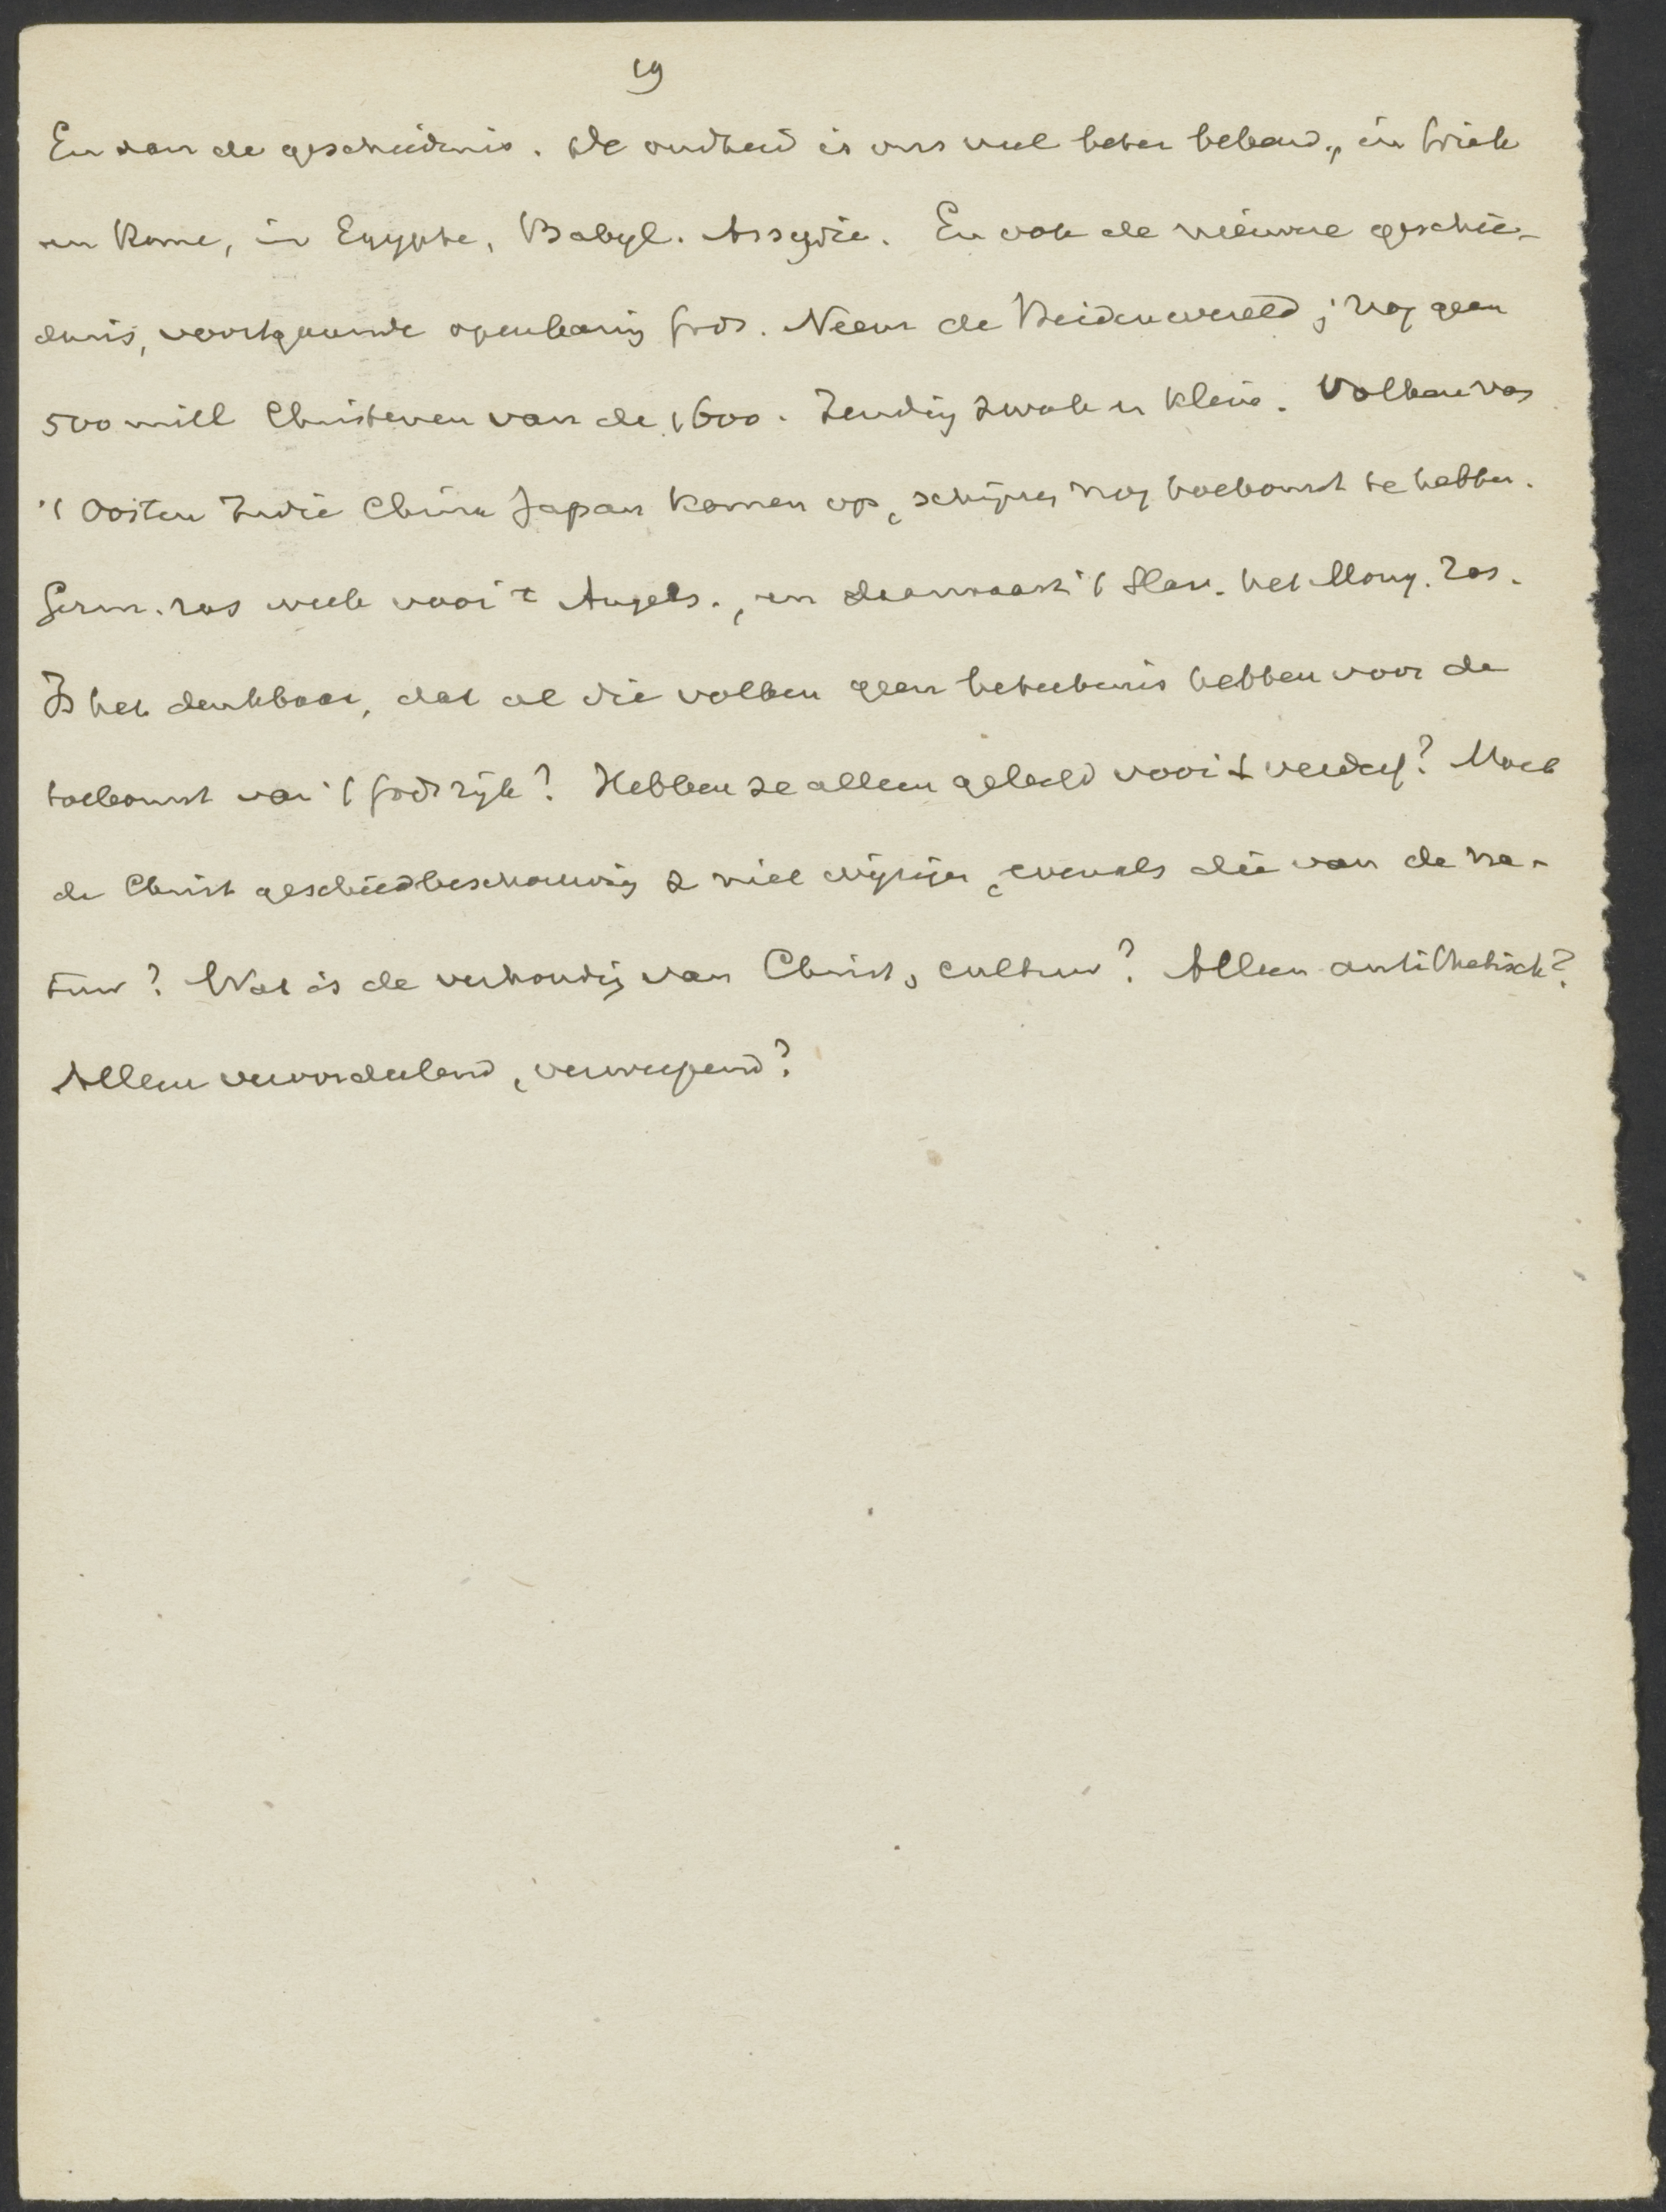 19
En van de geschiedenis. De oudheid is ons veel beter bekend, in Griek
en Rome, in Egypte, Babyl. Assyrie. En ook de nieuwe geschie-
denis, voortgaande openbaring Gods. Neem de Heidenwereld; nog geen
500 mill Christenen van de 1600. Zending zwak en klein. Volken van
't Oosten Indie China Japan komen op, schijnen nog toekomst te hebben.
Germ. ras week voor 't Angels., en daarnaast 't Slav. het Mong. ras.
Is het denkbaar, dat al die volken geen beteekenis hebben voor de
toekomst van 't Godsrijk? Hebben ze alleen geleefd voor 't verderf? Moet
de Christ geschiedbeschouwing z niet wijzigen, evenals die van de na-
tuur? Wat is de verhouding van Christ, cultuur? Alleen antithetisch?
Alleen veroordeelend, verwerpend?